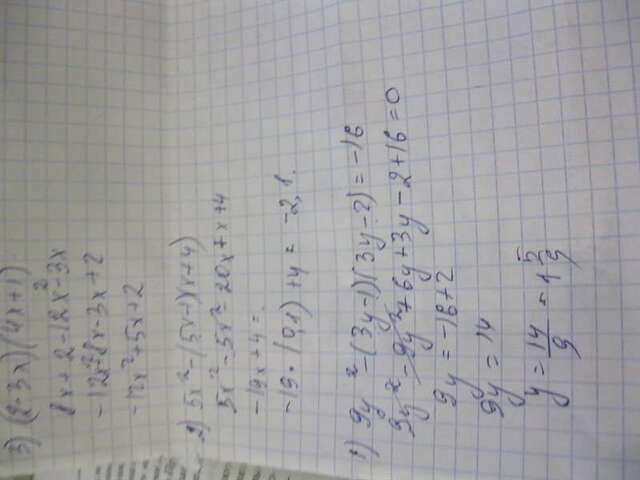 3) (2-3x)(4x+1)
8x+2-12x²-3x
-12x²8x-3x+2
-12x²+5x+2
2) 5x²-(5x-1)(x+4)
5x²-5x²-20x+x+4
-19x+4=
-19·(0,1)+4= -2,1.
1) 9y²-(3y-1)(3y-2)=-16
9y²-9y²+6y+3y-2+16=0
9y=-16+2
9y=14
y=14/9=1 5/9